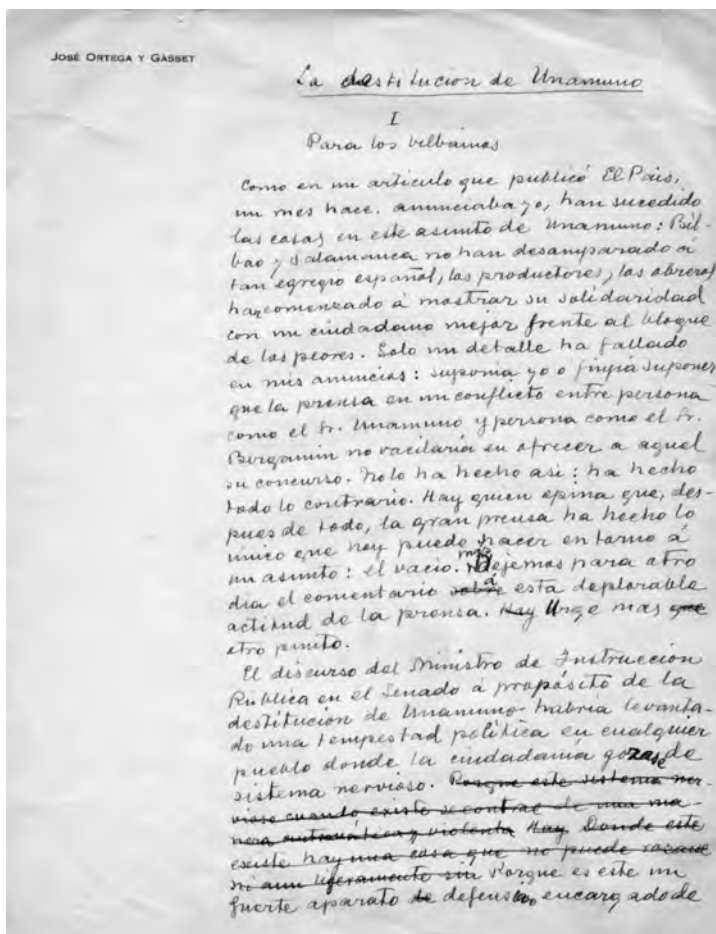 JOSÉ ORTEGA Y GASSET
La destitucion de Unamuno
I
Para los bilbainos
Como en un artículo que publicó El País,
un mes hace, anunciaba yo, han sucedido
las cosas en este asunto de Unamuno: Bil-
bao y Salamanca no han desamparado á
tan egregio español, los productores, los obreros
han comenzado á mostrar su solidaridad
con un ciudadano mejor frente al bloque
de los peores. Solo un detalle ha fallado
en mis anuncios: suponía yo o fingía suponer
que la prensa en un conflicto entre persona
como el Sr. Unamuno y persona como el Sr.
Bergamin no vacilaría en ofrecer a aquel
su concurso. No lo ha hecho asi: ha hecho
todo lo contrario. Hay quien opina que, des-
pues de todo, la gran prensa ha hecho lo
único que hoy puede hacer en torno á
un asunto: el vacio. Dejemos para otro
dia el comentario sobre á esta deplorable
actitud de la prensa. Hay Urge mas que
otro punto.
El discurso del Ministro de Instrucción
Publica en el Senado á propósito de la
destitución de Unamuno habría levanta-
do una tempestad política en cualquier
pueblo donde la ciudadanía gozase de
sistema nervioso. Porque este sistema ner-
vioso cuando existe se contrae de una ma-
nera automática y violenta Hay. Donde este
existe hay una cosa que no puede
ni aun ligeramente sin Porque es este un
fuerte aparato de defensivo encargado de